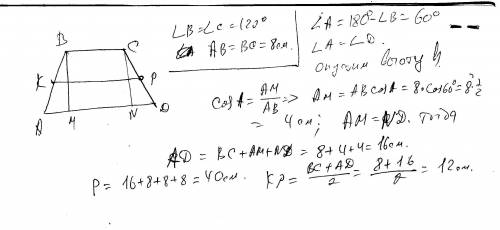 B C
K P
A M N D
∠B=∠C=120°
AB=BC=8см.
∠A=180°-∠B=60°
∠A=∠D.
Опустим высоту h
cosA = AM/AB => AM = AB cosA = 8·cos60° = 8·1/2
= 4см; AM=ND. Тогда
AD = BC+AM+ND = 8+4+4=16см.
P = 16+8+8+8=40см. KP = (BC+AD)/2 = (8+16)/2 = 12см.